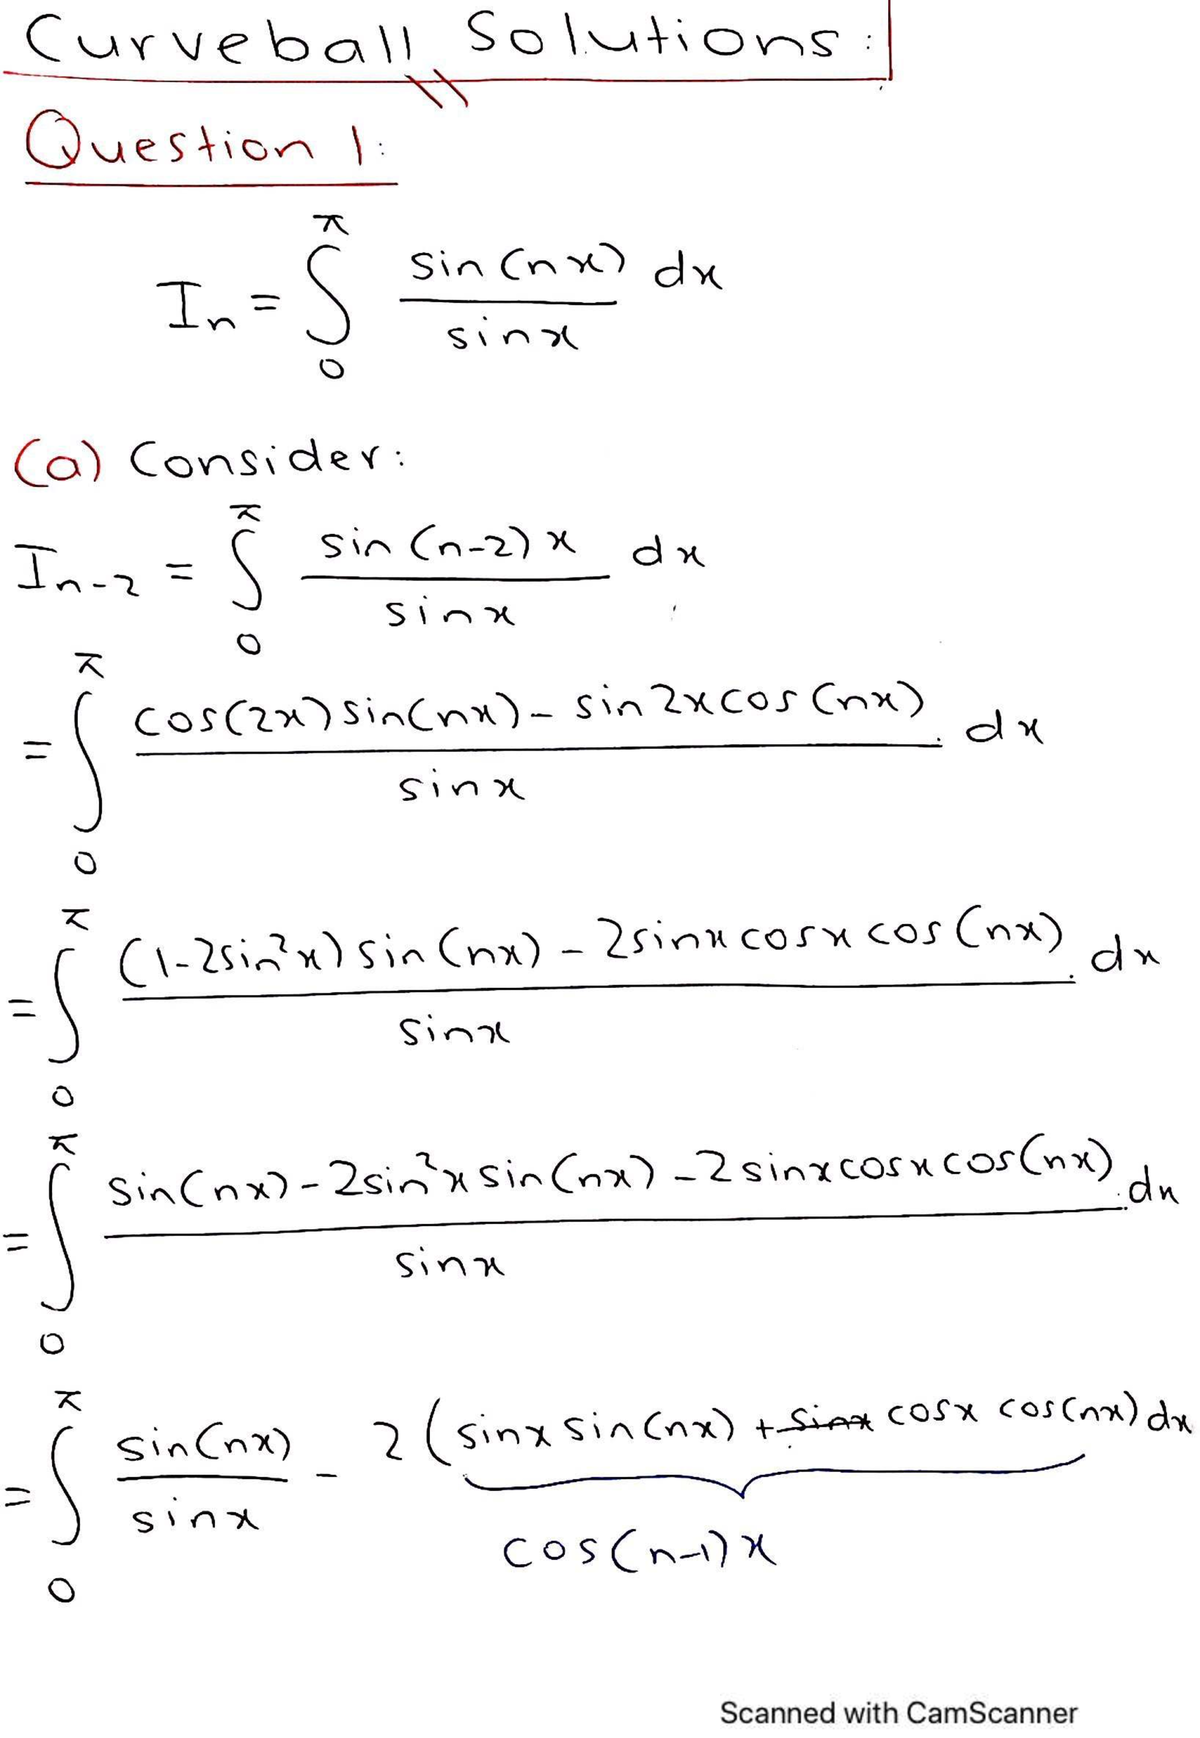 Curveball Solutions:
Question 1:
Iₙ = ∫₀^π sin(nx)/sinx dx
(a) Consider:
Iₙ₋₂ = ∫₀^π sin(n-2)x/sinx dx
= ∫₀^π (cos(2x)sin(nx) - sin2xcos(nx))/sinx dx
= ∫₀^π ((1-2sin²x)sin(nx) - 2sinxcosxcos(nx))/sinx dx
= ∫₀^π (sin(nx) - 2sin²xsin(nx) - 2sinxcosxcos(nx))/sinx dx
= ∫₀^π sin(nx)/sinx - 2(sinxsin(nx) + ~~sinx~~ cosx cos(nx)) dx
cos(n-1)x
Scanned with CamScanner